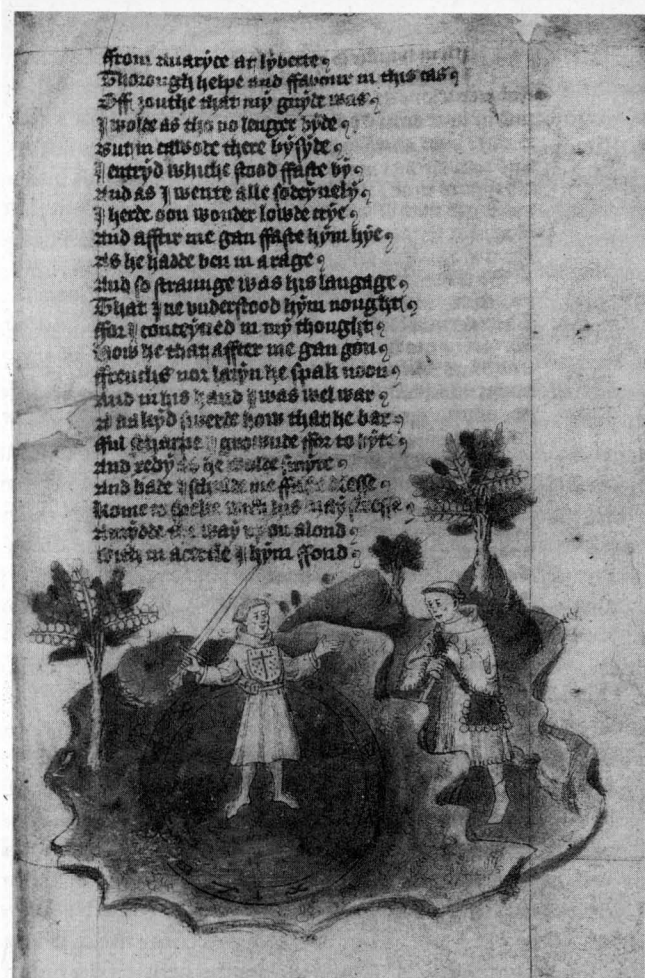 ffrom Auaryce at lyberte
Thorough helpe and ffavour in this cas
Off youthe that my guyde was
I wolde as tho no lenger byde
But in a wode there bysyde
I entryd whiche stood ffaste by
And as I wente alle sodeynely
I herde oon wonder lowde crye
And afftir me gan ffaste hym hye
As he hadde ben in a rage
And so straunge was his langage
That I ne vnderstood hym nought
ffor I conceyued in my thought
How he that affter me gan gon
ffrenchs nor latyn he spak noon
And in his hand I was wel war
A nakyd swerde how that he bar
fful scharpe grounde ffor to byte
And redy as he wolde smyte
And bade I schulde me ffaste dresse
Kome to speke with his maystresse
Amydde the way vpon a lond
With in a cercle I hym ffond